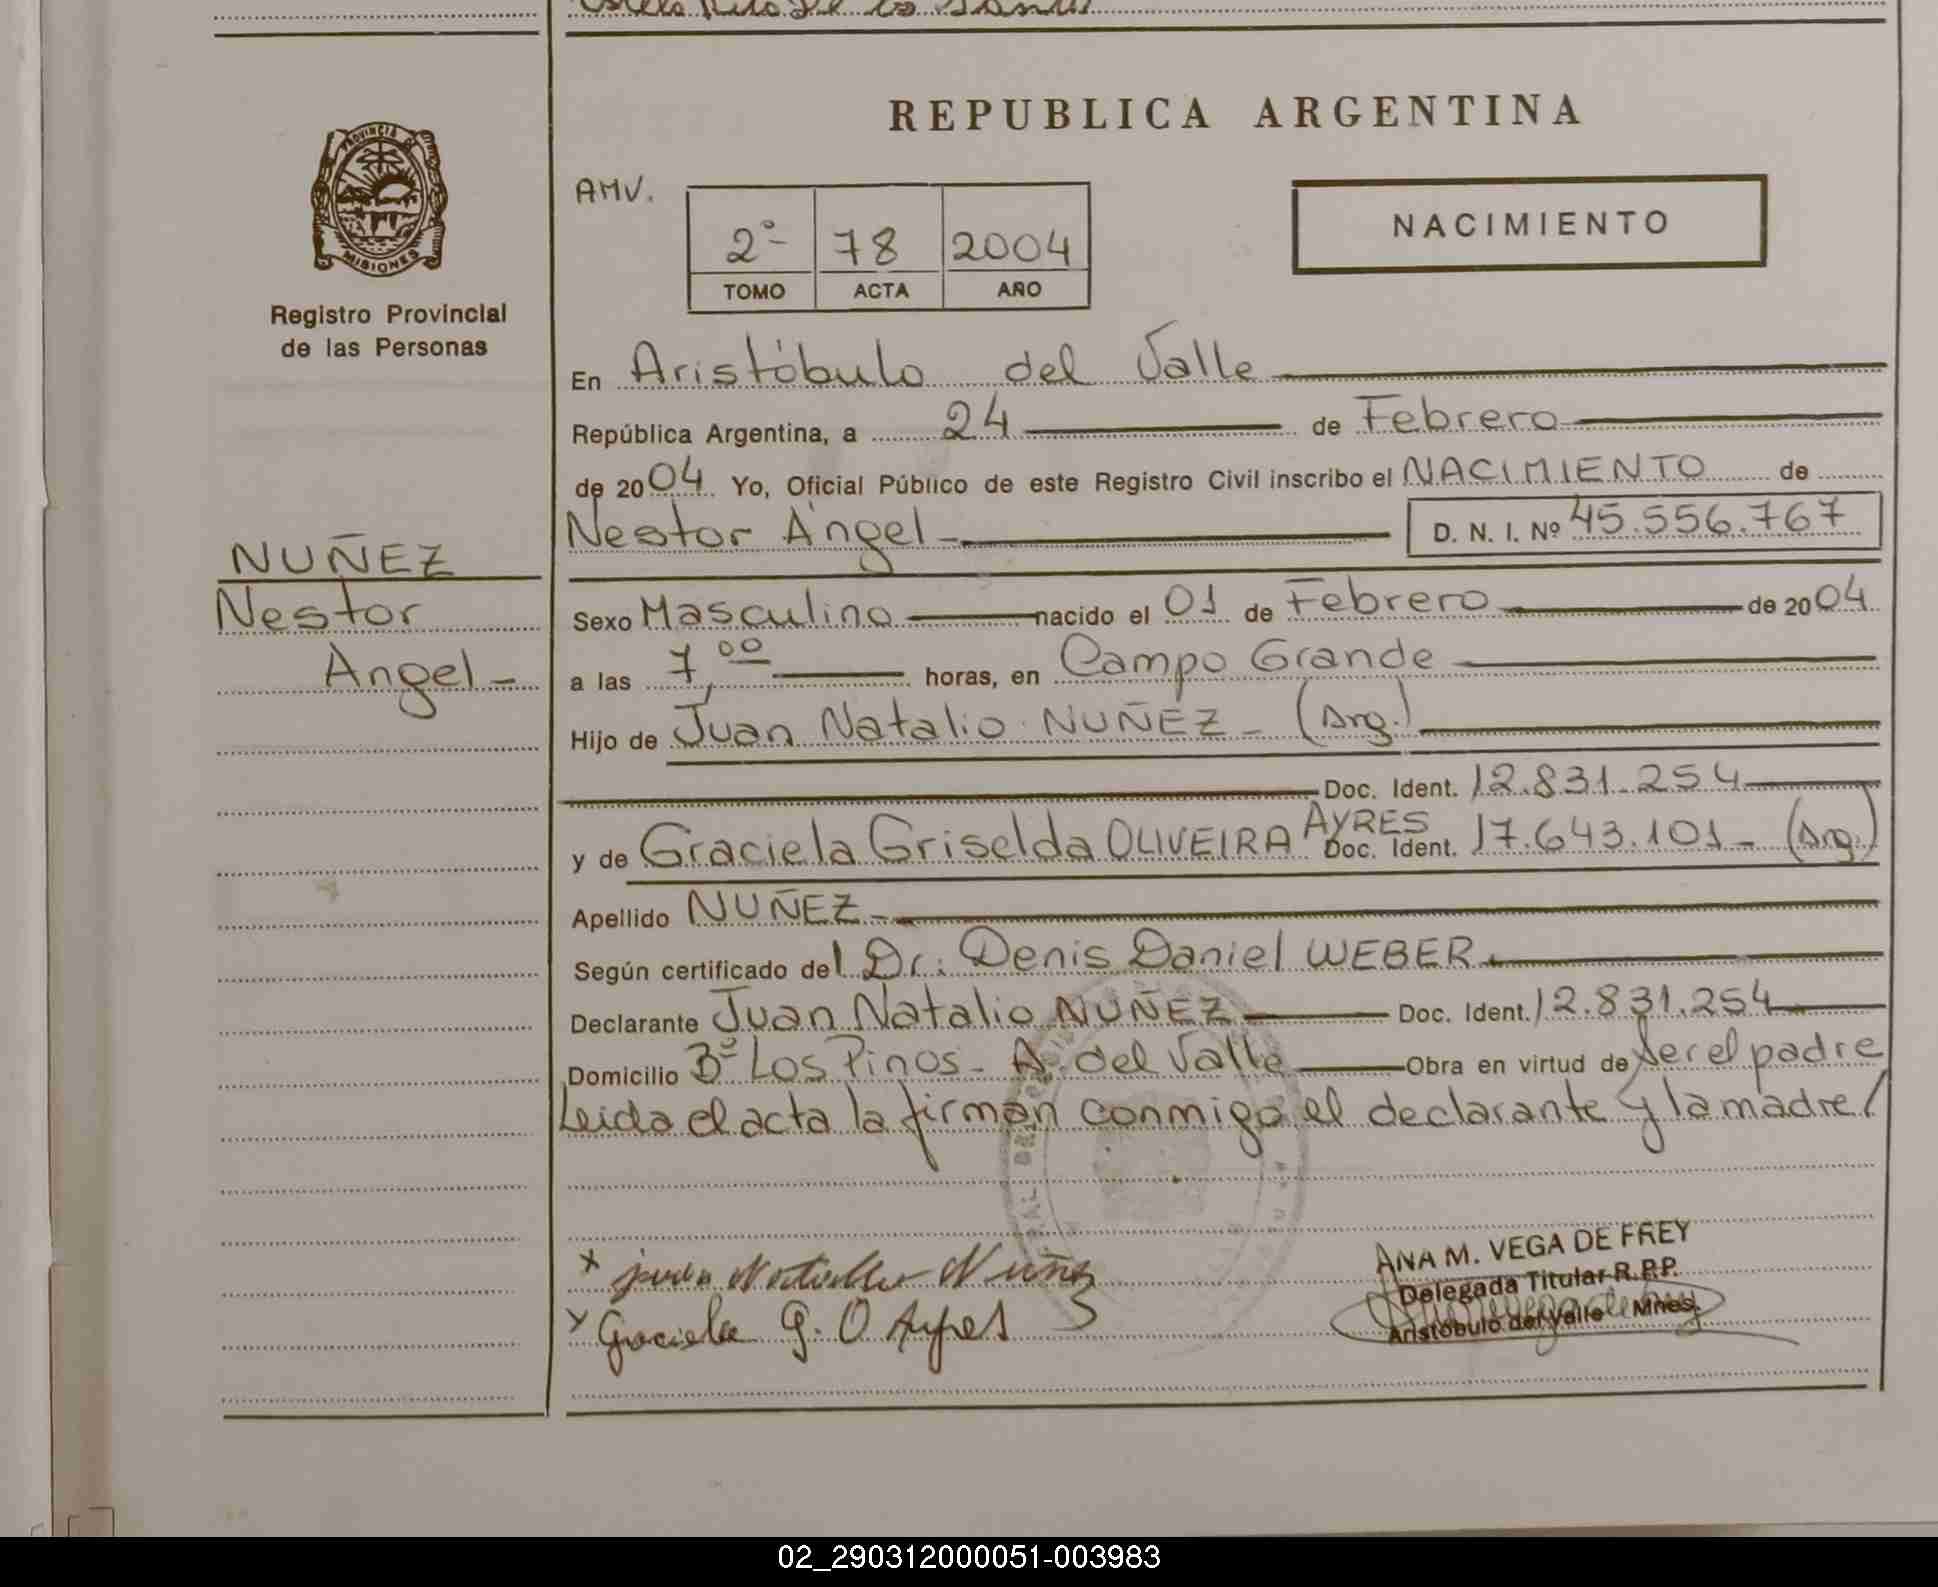 REPUBLICA ARGENTINA
PROVINCIA DE
MISIONES
Registro Provincial
de las Personas
AMV.
2º 78 2004
TOMO ACTA AÑO
NACIMIENTO
En Aristóbulo del Valle
República Argentina, a 24 de Febrero
de 2004 Yo, Oficial Público de este Registro Civil inscribo el NACIMIENTO de
Nestor Angel D. N. I. Nº 45.556.767
NUÑEZ
Nestor
Angel
Sexo Masculino nacido el 01 de Febrero de 2004
a las 7,00 horas, en Campo Grande
Hijo de Juan Natalio NUÑEZ - (Arg.)
Doc. Ident. 12.831.254
y de Graciela Griselda OLIVEIRA AYRES Doc. Ident. 17.643.101 - (Arg.)
Apellido NUÑEZ
Según certificado del Dr. Denis Daniel WEBER
Declarante Juan Natalio NUÑEZ Doc. Ident. 12.831.254
Domicilio Bº Los Pinos - A. del Valle Obra en virtud de ser el padre
Leida el acta la firman conmigo el declarante y la madre/
x juan Natalio Nuñez
x Graciela G. O Ayres
ANA M. VEGA DE FREY
Delegada Titular R.P.P.
Aristóbulo del Valle Mnes.
02_290312000051-003983